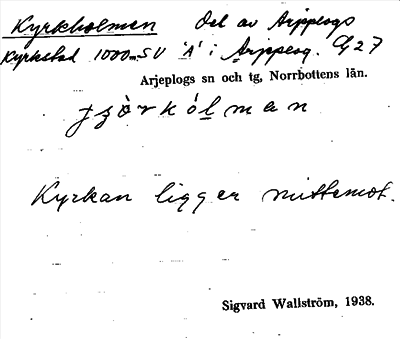 Kyrkholmen Del av Arjeplogs
Kyrkstad 1000m SV 'A' i Arjeplog. G27
Arjeplogs sn och tg, Norrbottens län.
Kyrkan ligger mittemot.
Sigvard Wallström, 1938.